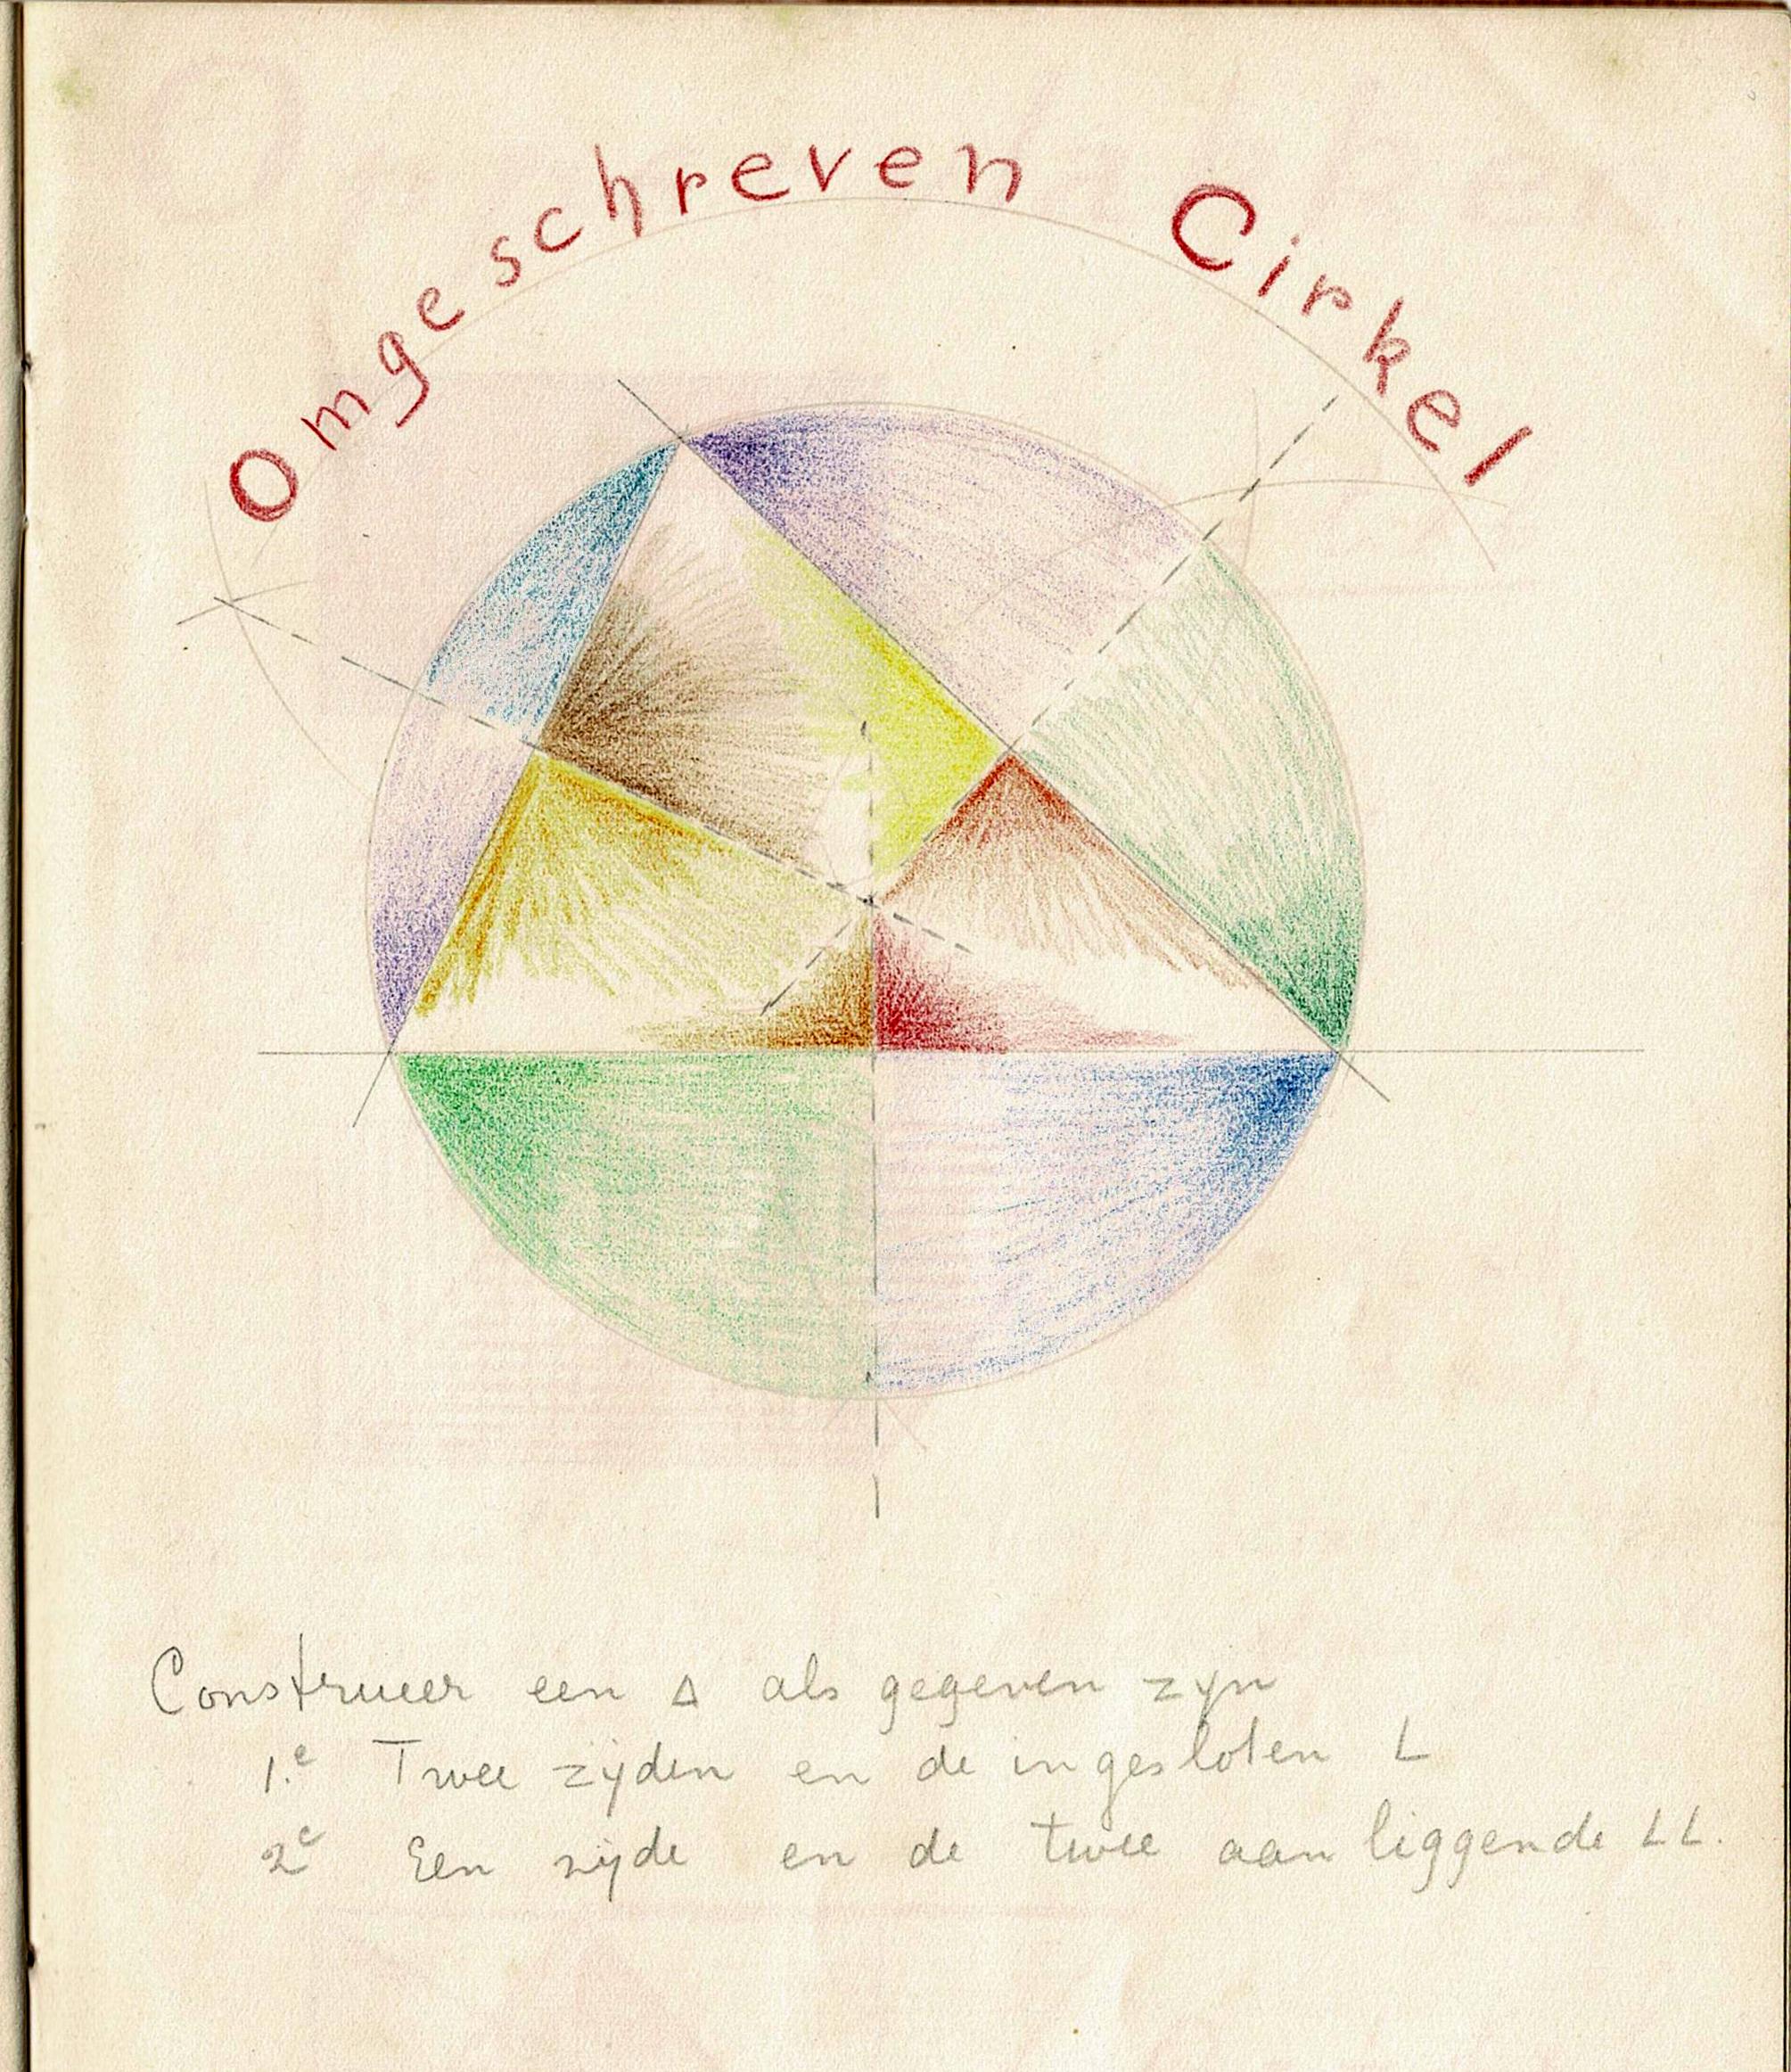 Omgeschreven Cirkel
Construeer een Δ als gegeven zyn
1.e Twee zijden en de ingesloten L
2e Een zijde en de twee aanliggende LL.